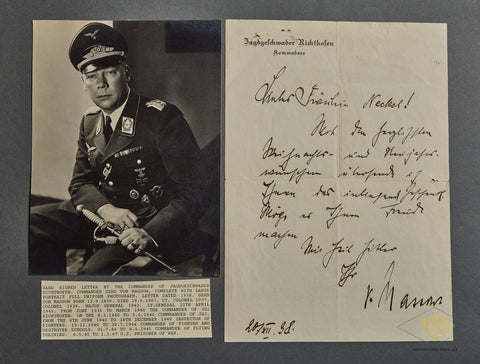 Jagdgeschwader Richthofen
Kommodore
Fräulein Neckel!
Mit den herzlichsten
Weihnachts- und Neujahrs-
wünschen übersende ich
Ihnen das
Möge es Ihnen Freude
machen
Mit Heil Hitler
Ihr
v. Massow
HAND SIGNED LETTER BY THE COMMANDER OF JAGDGESCHWADER
RICHTHOFEN. COMMANDER GERD VON MASSOW. COMPLETE WITH LARGE
PORTRAIT FULL UNIFORM PHOTOGRAPH. LETTER DATED 1938. GERD
VON MASSOW BORN 11.9.1896. DIED 29.6.1967. LT. COLONEL 1937.
COLONEL 1939. MAJOR GENERAL 1943. LT.GENERAL 20TH APRIL
1945. FROM JUNE 1936 TO MARCH 1940 THE COMMANDER OF JG2
RICHTHOFEN. ON THE 6.3.1940 TO 3.4.1940 COMMANDER OF JG2.
FROM THE 6TH JUNE 1940 TO 18TH DECEMBER 1940 INSPECTOR OF
FIGHTERS. 19.12.1940 TO 30.7.1944 COMMANDER OF FIGHTER AND
DESTROYER SCHOOLS. 1.8.44 TO 8.5.1945 COMMANDER OF FLYING
TRAINING. 9.5.45 TO 1.3.47 U.S. PRISONER OF WAR.